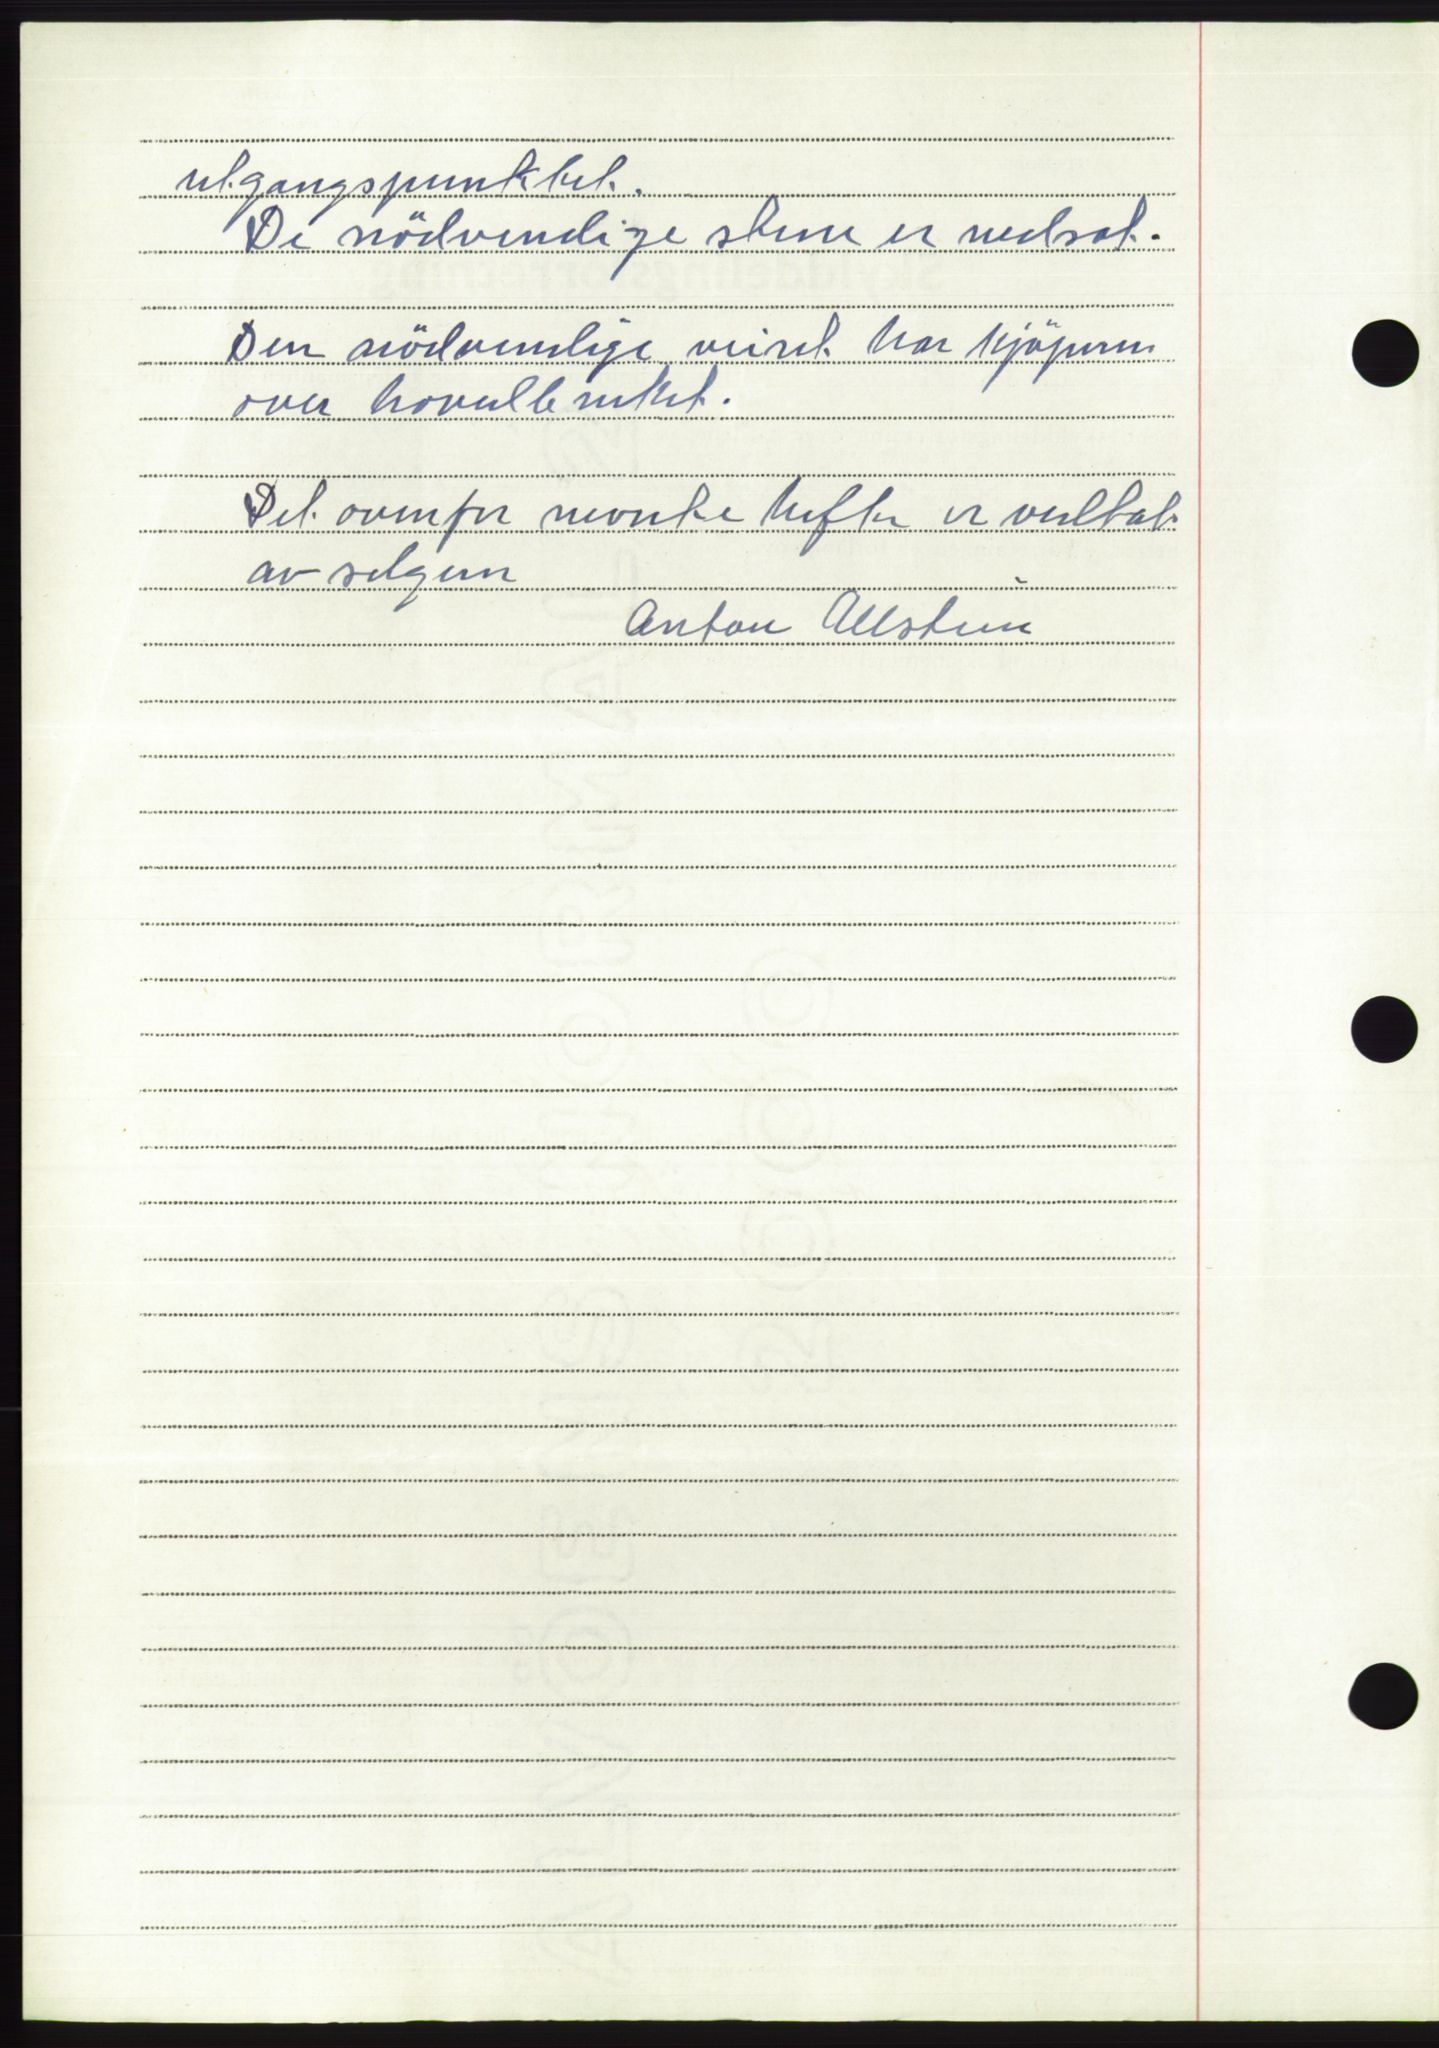 utgangspunktet.
De nödvendige stene er nedsat.
Den nödvendige veiret har kjöperen
over hovedbruket.
Det ovenfor nevnte hefte er vedtat
av selgeren
Anton Ullstein